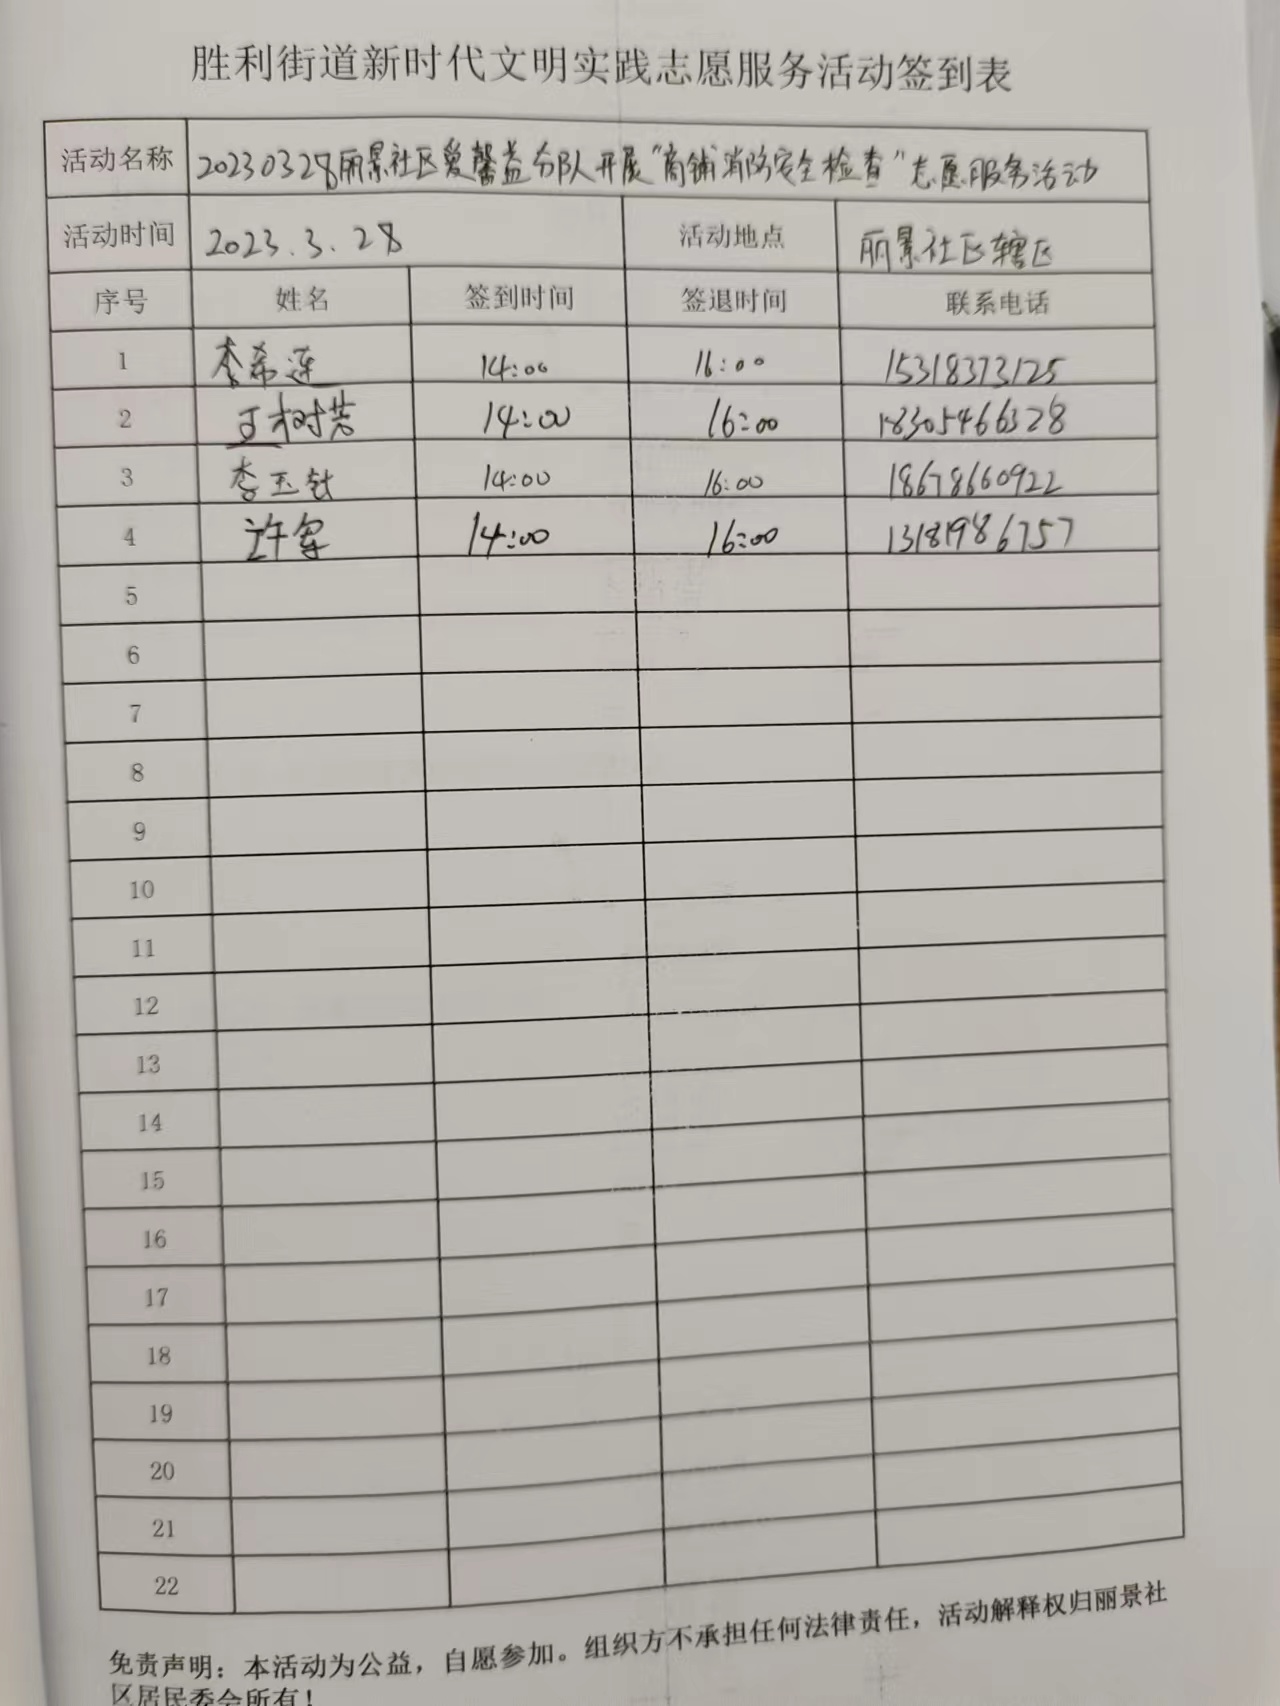 胜利街道新时代文明实践志愿服务活动签到表
活动名称 20230328丽景社区爱馨益分队开展“商铺消防安全检查”志愿服务活动
活动时间 2023.3.28 活动地点 丽景社区辖区
序号 姓名 签到时间 签退时间 联系电话
1 李希莲 14:00 16:00 15318373125
2 王树芳 14:00 16:00 18305466328
3 李玉 14:00 16:00 18678660922
4 许军 14:00 16:00 13181986757
5
6
7
8
9
10
11
12
13
14
15
16
17
18
19
20
21
22
免责声明：本活动为公益，自愿参加。组织方不承担任何法律责任，活动解释权归丽景社
区居民委会所有！